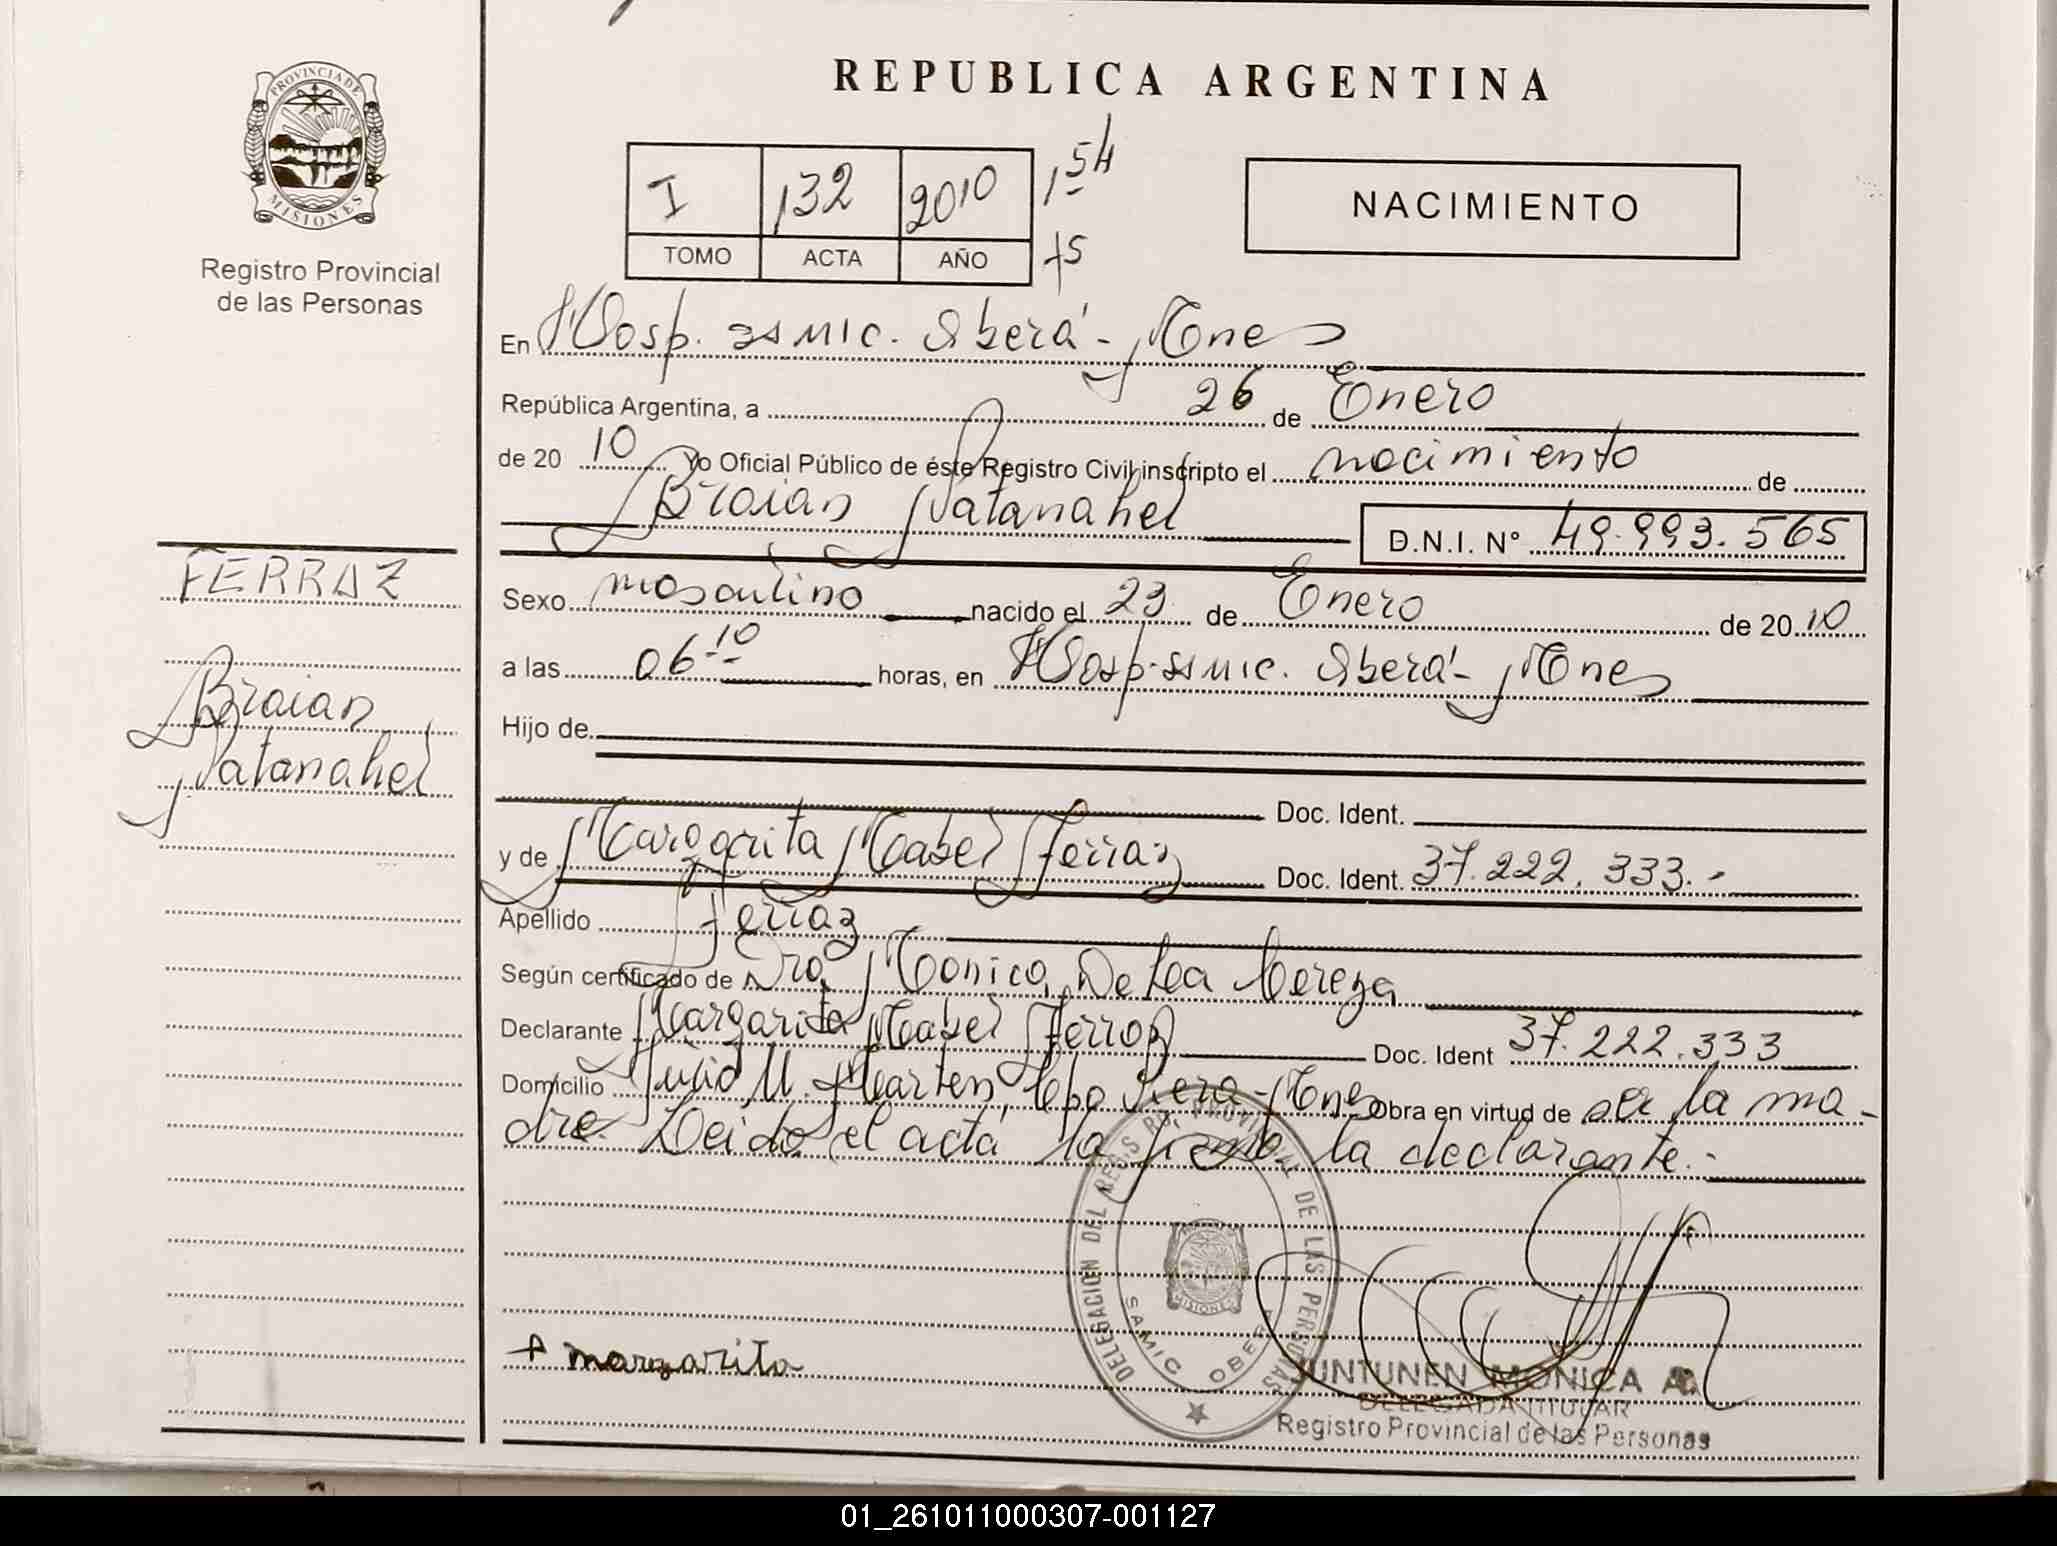 PROVINCIA DE
MISIONES
Registro Provincial
de las Personas
REPUBLICA ARGENTINA
I 132 2010 1 54
TOMO ACTA AÑO +5
NACIMIENTO
En Hosp. Samic. Oberá - Mnes
República Argentina, a 26 de Enero
de 20 10 Yo Oficial Público de éste Registro Civil inscripto el nacimiento de
Braian Natanahel D.N.I. N° 49.993.565
FERRAZ
Braian
Natanahel
Sexo masculino nacido el 23 de Enero de 20 10
a las 06 10 horas, en Hosp. Samic. Oberá - Mnes
Hijo de
Doc. Ident.
y de Margarita Mabel Ferraz Doc. Ident. 37.222.333.-
Apellido Ferraz
Según certificado de Dra. Monica De Lea Cereza
Declarante Margarita Mabel Ferraz Doc. Ident 37.222.333
Domicilio Julio U. Martin, Cpo Viera - Mnes Obra en virtud de ser la ma-
dre. Leido el acta la firma la declarante.-
DELEGACION DEL REGIS RO. PROVINCIAL DE LAS PERSONAS
MISIONES
SAMIC OBERA
+ margarita
JUNTUNEN MONICA A.
DELEGADA TITULAR
Registro Provincial de las Personas
01_261011000307-001127